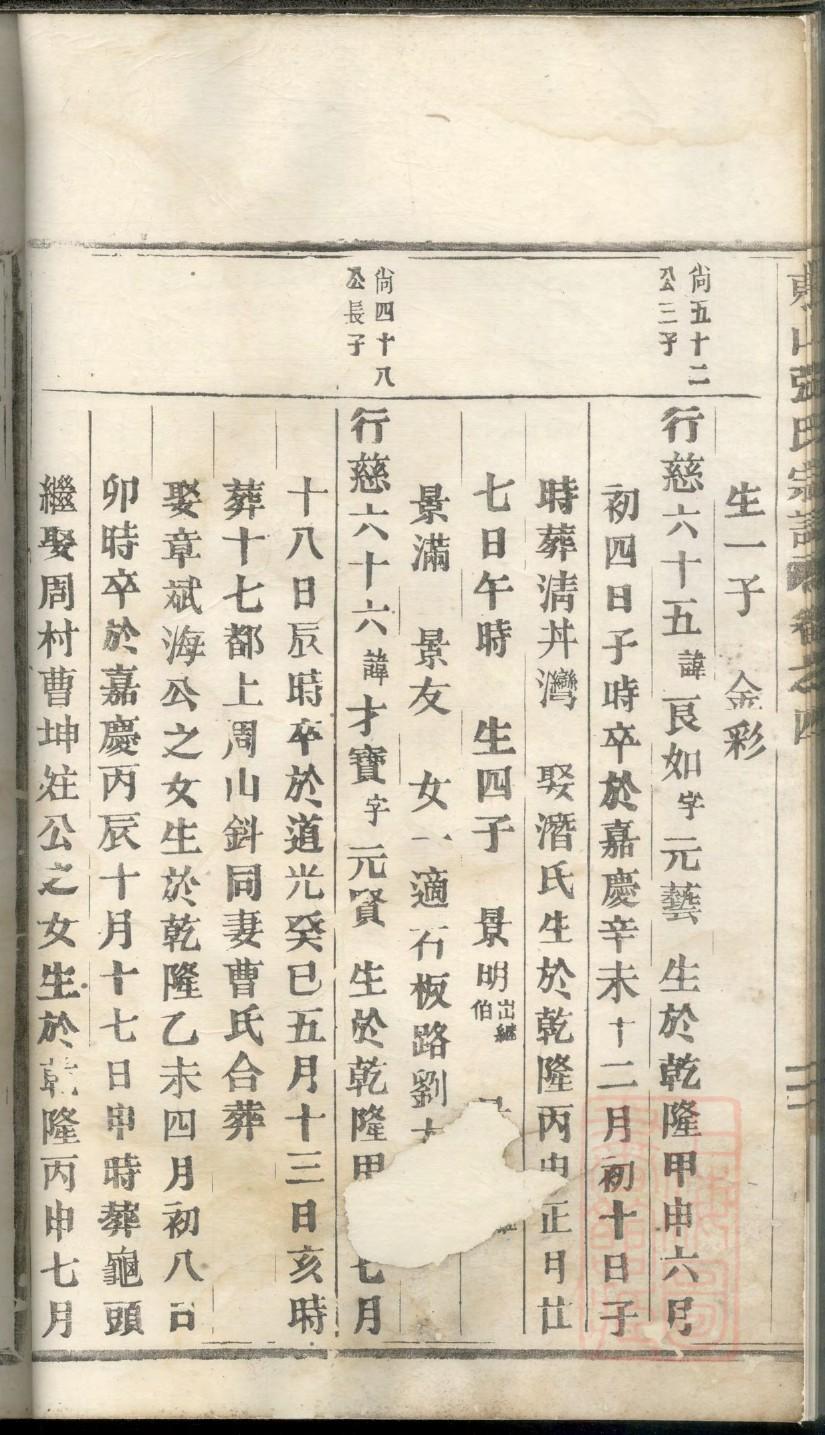 生一子 金彩
尚五十二
公三子
行慈六十五諱艮如字元藝 生於乾隆甲申六月
初四日子時卒於嘉慶辛未十二月初十日子
時葬淸丼灣 娶濳氏生於乾隆丙申正月廿
七日午時 生四子 景明出繼伯
景滿 景友 女一適石板路劉
尚四十八
公長子
行慈六十六諱才寶字元賢 生於乾隆甲 七月
十八日辰時卒於道光癸巳五月十三日亥時
葬十七都上周山斜同妻曹氏合葬
娶章斌海公之女生於乾隆乙未四月初八日
卯時卒於嘉慶丙辰十月十七日申時葬龜頭
繼娶周村曹坤㽵公之女生於乾隆丙申七月